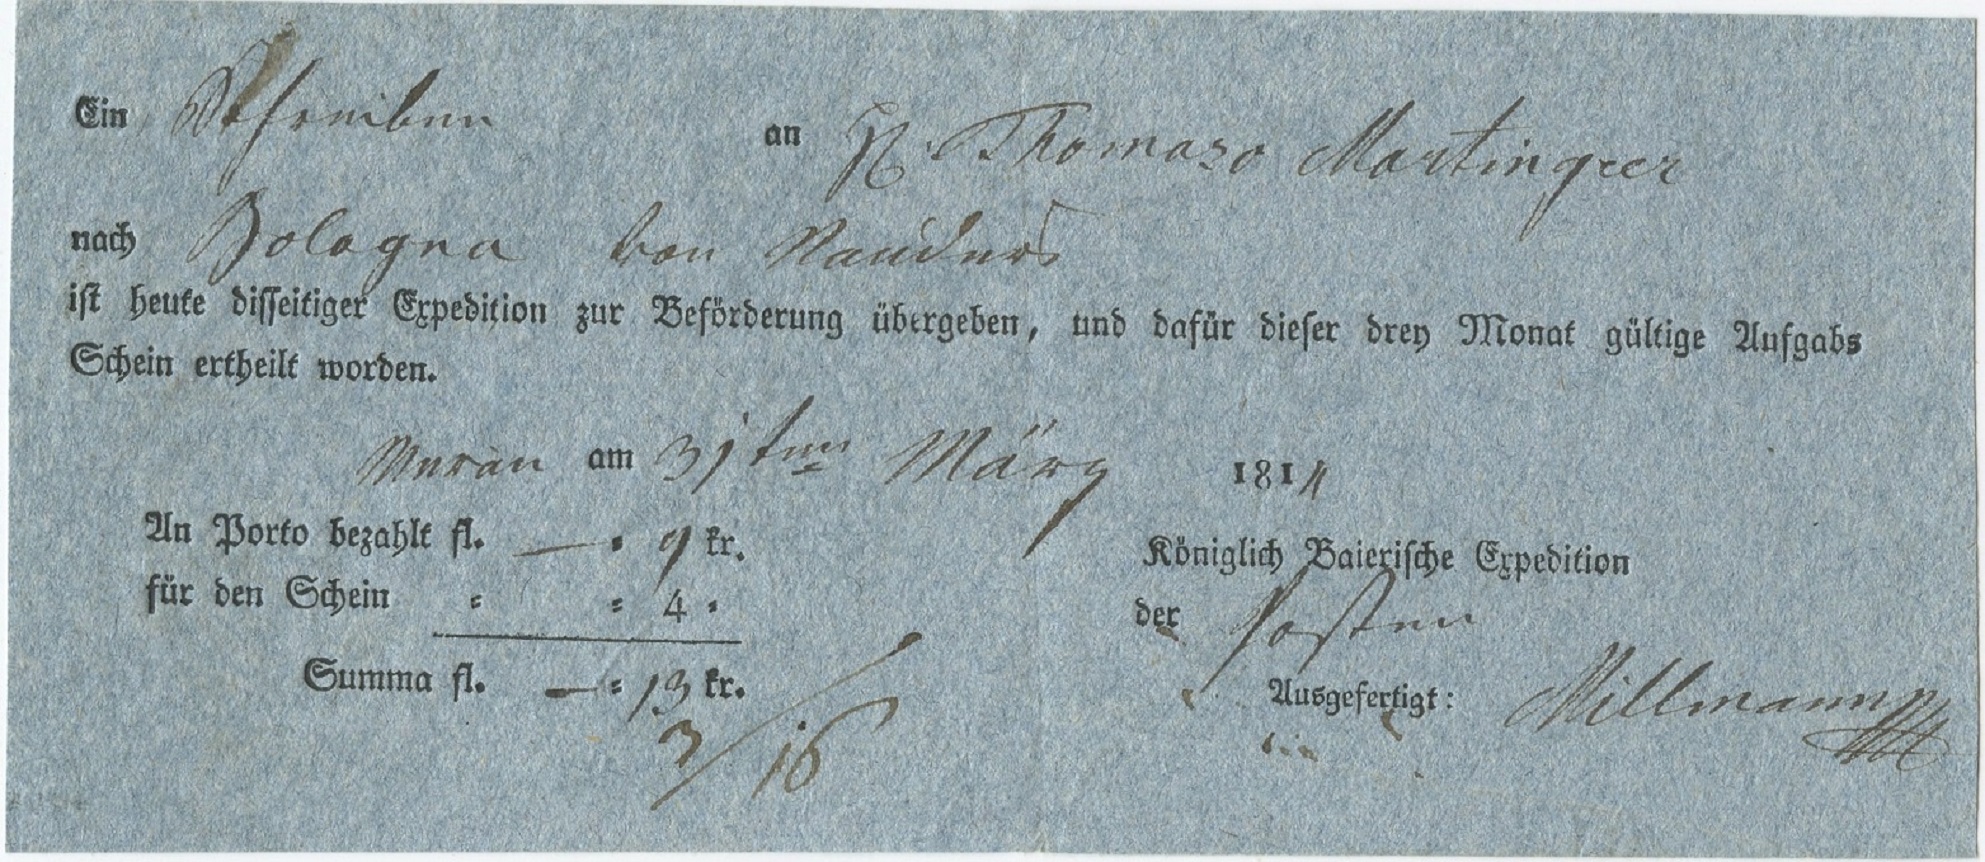 Ein Schreiben an H. Thomaso Martingeer
nach Bologna von Nauders
ist heute disseitiger Expedition zur Beförderung übergeben, und dafür dieser drey Monat gültige Aufgabs
Schein ertheilt worden.
Meran am 31ten März 1811
An Porto bezahlt fl. — = 9 kr.
für den Schein = = 4 =
Summa fl. — = 13 kr.
Königlich Baierische Expedition
der Posten
Ausgefertigt: Millmann